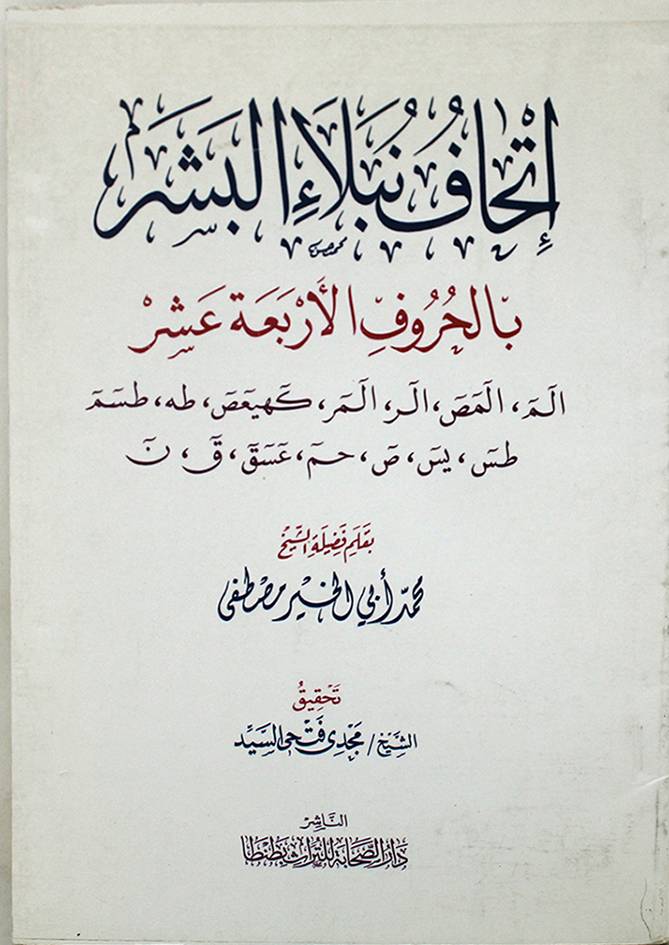 إِتْحَافُ نُبَلَاءِ الْبَشَرِ
بِالحُرُوفِ الأَرْبَعَةَ عَشَرْ
الٓمٓ، الٓمٓصٓ، الٓر، الٓمٓر، كٓهيعٓصٓ، طه، طسٓمٓ
طسٓ، يسٓ، صٓ، حمٓ، عٓسٓقٓ، قٓ، نٓ
بقَلَمِ فَضِيلَةِ الشَّيْخِ
محمّد أبي الخير مصطفى
تَحْقِيقُ
الشَّيْخِ / مَجْدِي فَتْحِي السَّيِّد
النَّاشِرْ
دَارُ الصَّحَابَةِ لِلتُّرَاثِ بِطَنْطَا